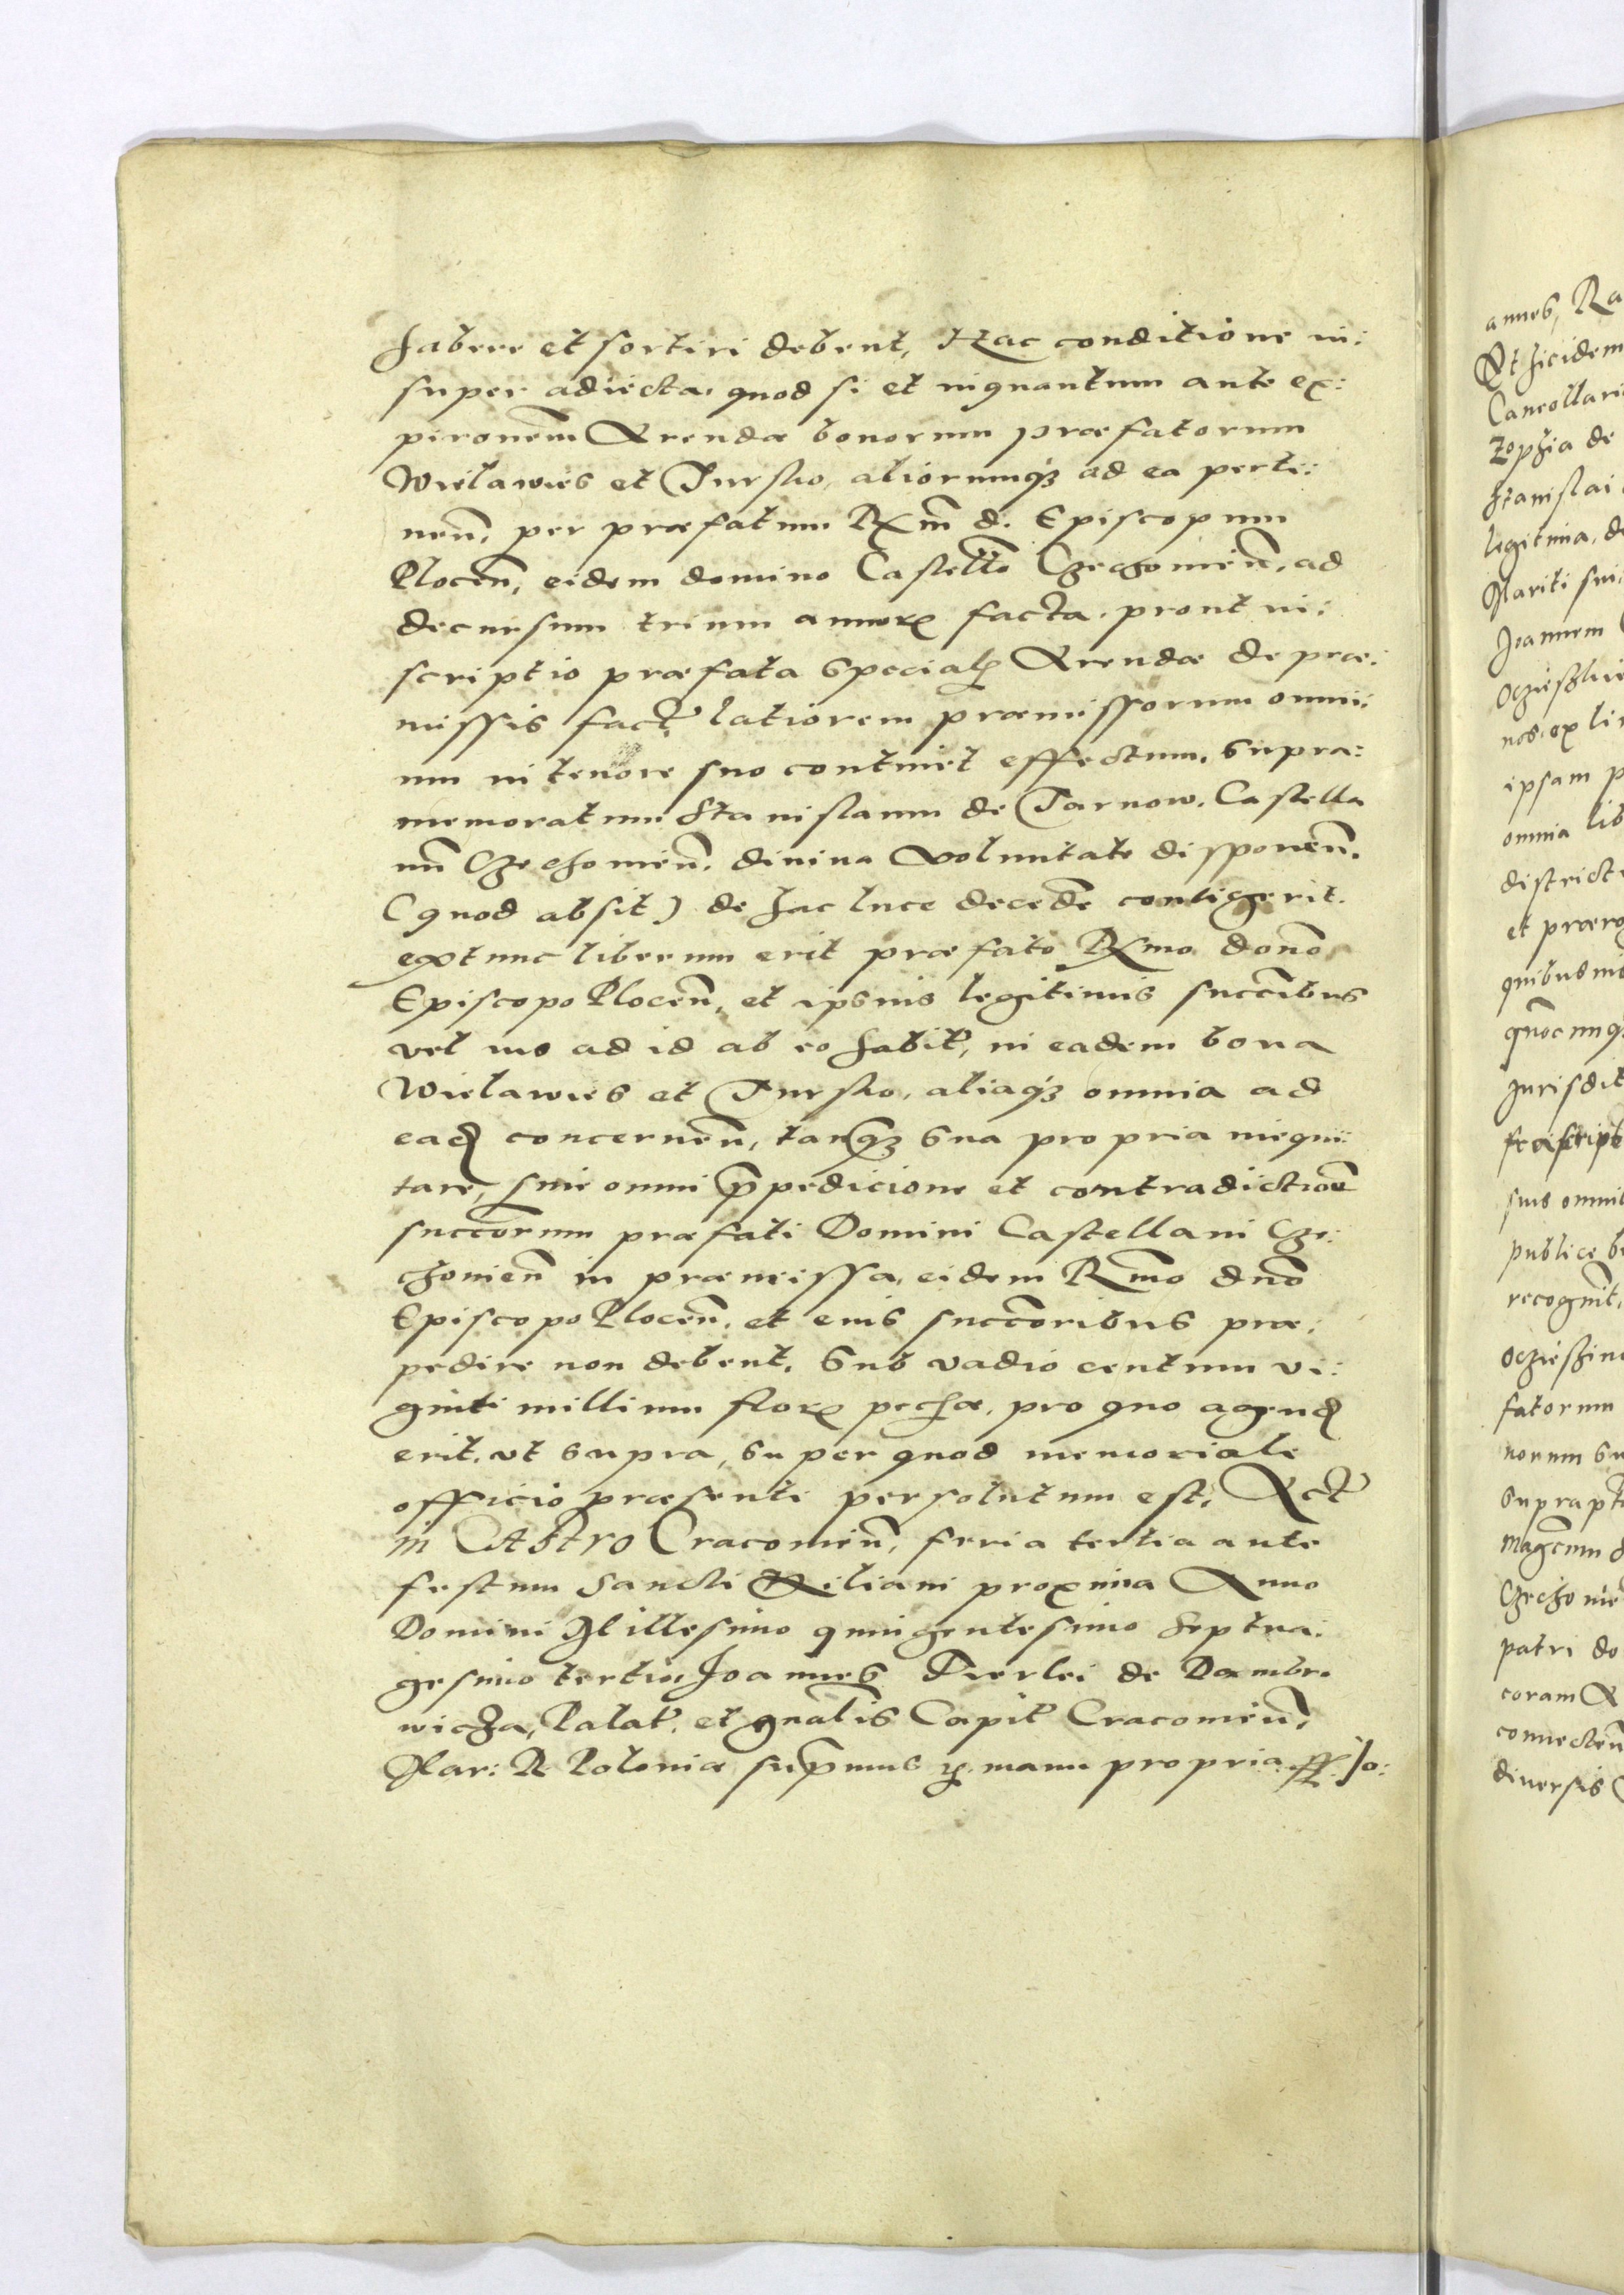 habere et sortiri debent, Hac conditione in:
super adiecta, quod si et inquantum ante ex:
pironem̃ Arendæ bonorum præfatorum
Wielawies et Tursko, aliorumq₃ ad ea perti:
neñ, per præfatum Rm̃ d. Episcopum
Ploceñ, eidem domino Castellõ Czechonieñ, ad
decursum trium annorꝝ facta, prout in:
scriptio præfata Specialꝭ Arendæ de præ:
missis fact latiorem præmissorum omni:
um in tenore suo continet effectum, Supra:
memoratum Stanislaum de Tarnow, Castella
nũ Czechonieñ, divina voluntate disponeñ.
(quod absit) de hac luce decedẽ contigerit.
extunc liberum erit præfato Rmo donõ
Episcopo Ploceñ, et ipsius legitimis succĩbus
vel ius ad id ab eo habit, in eadem bona
Wielawies et Tursko, aliaq₃ omnia ad
ead concerneñ, tanq₃ sua propria inequi:
tare, sine omni p̃pedicione et contradictiõe
succorum præfati Domini Castellani Cze:
chonieñ in præmissa, eidem Rm̃o dnõ
Episcopo Ploceñ, et eius succoribus præ:
pedire non debent, Sub vadio centum vi:
ginti millium florꝝ pechæ, pro quo agend
erit, ut supra, super quod memoriale
officio præsenti persolutum est, Act
in CAStro Cracovieñ, feria tertia ante
festum Sancti Kiliani proxima Anno
Domini Millesimo quingentesimo Septua:
gesimo tertio, Joannes Fierlei de Dambro
wicza, Palat, et gnãlis Capit Cracovieñ,
Mar: R Poloniæ sup̃mus ꝗ manu propria Jo:
annes, Ra
Et hicidem
Cancellari
Zophia de
Stanislai
legitima, de
Mariti sui
Joannem
Oczieski
nos, ex li
ipsam p
omnia lib
districte
et prærog
quibus vis
quõcunq
Jurisdit
suis omnib
publice
recognit,
Oczieshin
fatorum
norum su
Suprapt
magcum
Czechonie
patri do
coram A
convecteñ
diversis